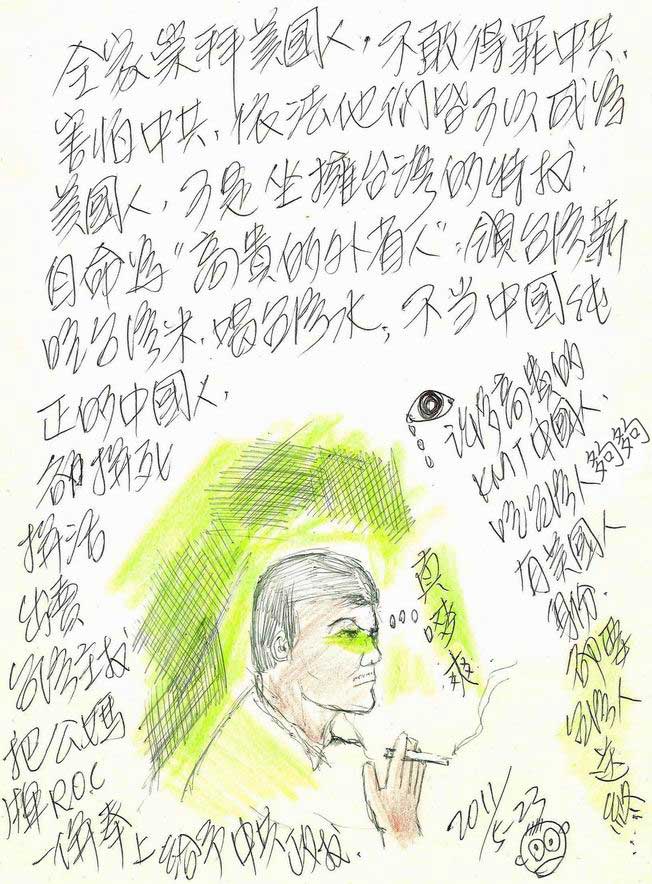 全家崇拜美國人，不敢得罪中共，
害怕中共，依法他們皆可以成為
美國人，可是坐擁台灣的特权．
自命為"高貴的外省人"；領台灣薪
吃台灣米，喝台灣水，不当中國純
正的中國人，
卻拚死
拚活
出賣
台灣主权
把公媽
牌R.O.C
一併奉上給予中共政权．
許多高貴的
KMT中國人，
吃台灣人夠夠
有美國人
身份．
卻要
台灣人
真
爽
2011/5-23